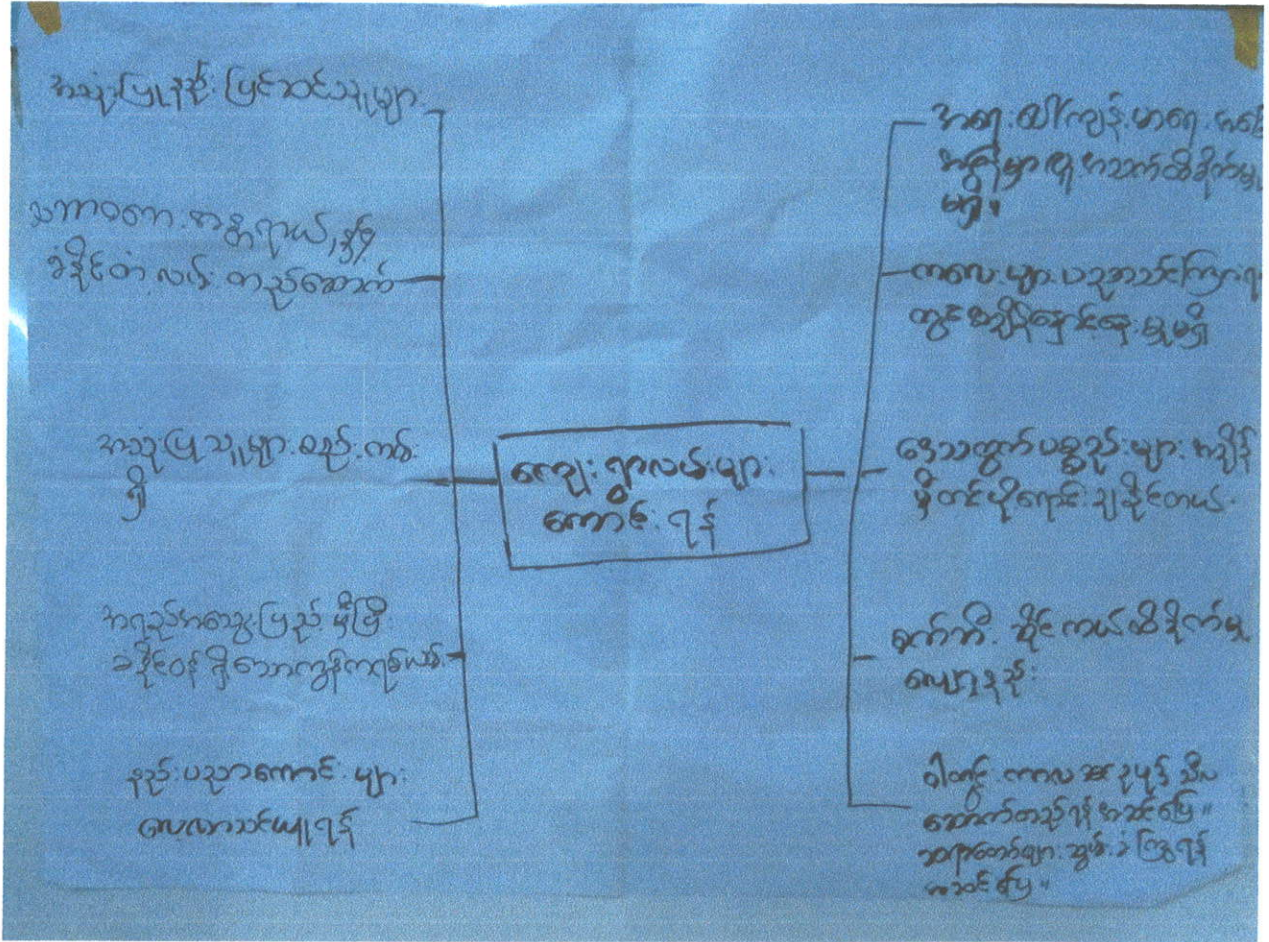 အသုံးပြုနည်း ပြင်ဆင်သူများ
သဘာဝဘေး အန္တရာယ်နှင့်
ခံနိုင်တဲ့ လမ်း တည်ဆောက်
အသုံးပြုသူများ စည်းကမ်း
ရှိ
အရည်အသွေးပြည့် မှီပြီး
ခံနိုင်ဝန် ရှိသောကွန်ကရစ်လမ်း
နည်းပညာကောင်းများ
လေ့လာသင်ယူရန်
ကျေးရွာလမ်းများ
ကောင်းရန်
အရေးပေါ်ကျန်းမာရေး
အသက်ထိခိုက်မှု
မရှိ
ကလေးများ ပညာသင်ကြားရာ
တွင် နှောင့်နှေးမှုမရှိ
ဒေသထွက်ပစ္စည်းများ အချိန်
မှီတင်ပို့ရောင်းချနိုင်တယ်
ရုတ်တရက် ထိခိုက်မှု
လျော့နည်း
ဝါတွင်းကာလ ဥပုဒ်သီလ
ဆောက်တည်ရန် အဆင်ပြေ။
ဆရာတော်များ ဆွမ်းခံကြွရန်
အဆင်ပြေ။